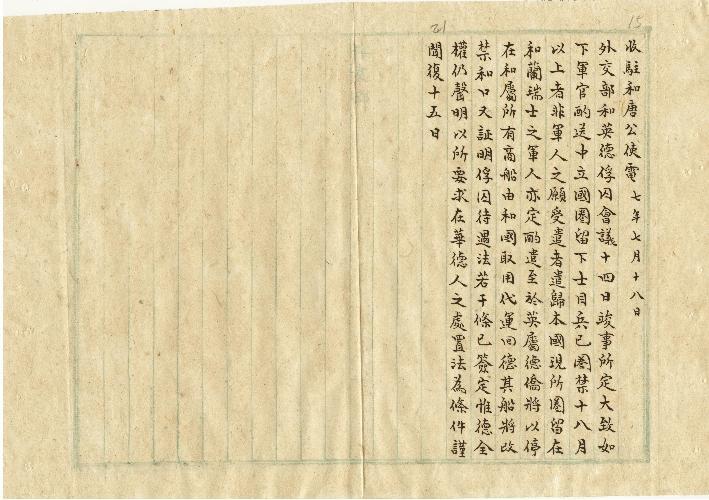 15
21
收駐和唐公使電 七年七月十八日
外交部和英德俘囚會議十四日竣事所定大致如
下軍官酌送中立國圈留下士目兵已圈禁十八月
以上者非軍人之願受遣者遣歸本國現所圈留在
和蘭瑞士之軍人亦定酌遣至於英屬德僑將以停
在和屬所有商船由和國取用代運回德其船將改
禁和口又証明俘囚待遇法若干條已簽定惟德全
權仍聲明以所要求在華德人之處置法為條件謹
聞復十五日